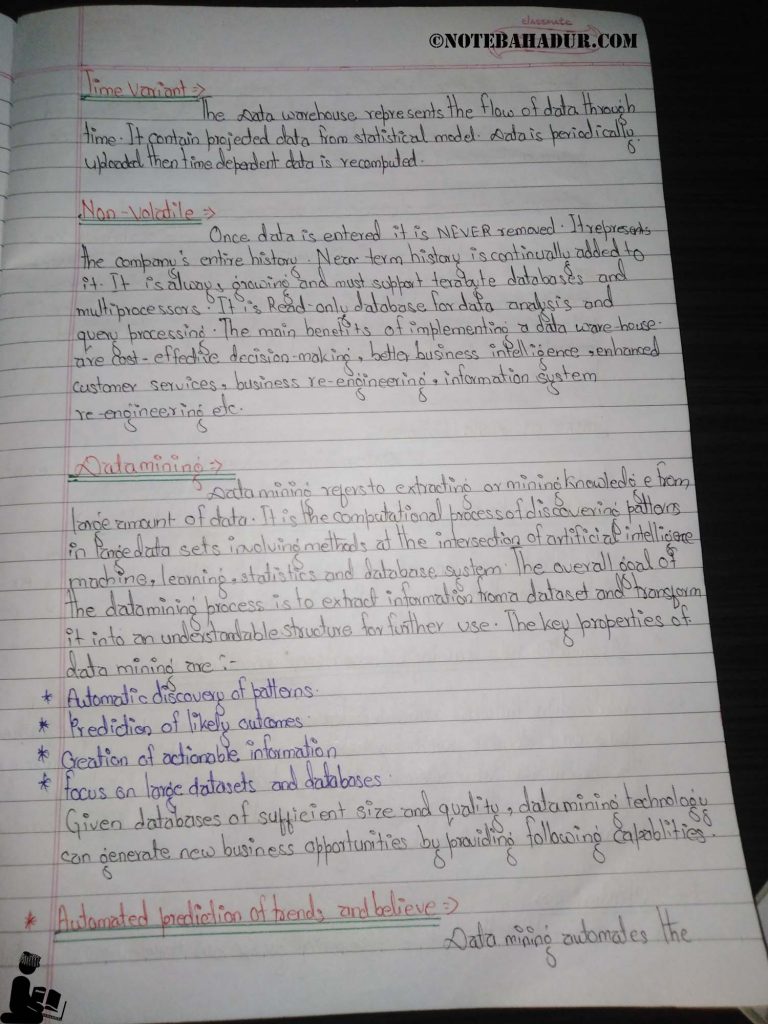 classmate
©NOTEBAHADUR.COM
Time Variant :=>
The Data warehouse represents the flow of data through
time. It contain projected data from statistical model. Data is periodically
uploaded then time dependent data is recomputed.
Non-Volatile :=>
Once data is entered it is NEVER removed. It represents
the company's entire history. Near term history is continually added to
it. It is always growing and must support terabyte databases and
multiprocessors. It is Read-only database for data analysis and
query processing. The main benefits of implementing a data ware-house.
are cost-effective decision-making, better business intelligence, enhanced
customer services, business re-engineering, information system
re-engineering etc.
Datamining :=>
Data mining refers to extracting or mining knowledge from
large amount of data. It is the computational process of discovering patterns
in large data sets involving methods at the intersection of artificial intelligence
machine, learning, statistics and database system. The overall goal of
the datamining process is to extract information from a dataset and transform
it into an understandable structure for further use. The key properties of
data mining are :-
* Automatic discovery of patterns.
* Prediction of likely outcomes.
* Creation of actionable information
* focus on large datasets and databases.
Given databases of sufficient size and quality, datamining technology
can generate new business opportunities by providing following capablities.
* Automated prediction of trends and believe :=>
Data mining automates the